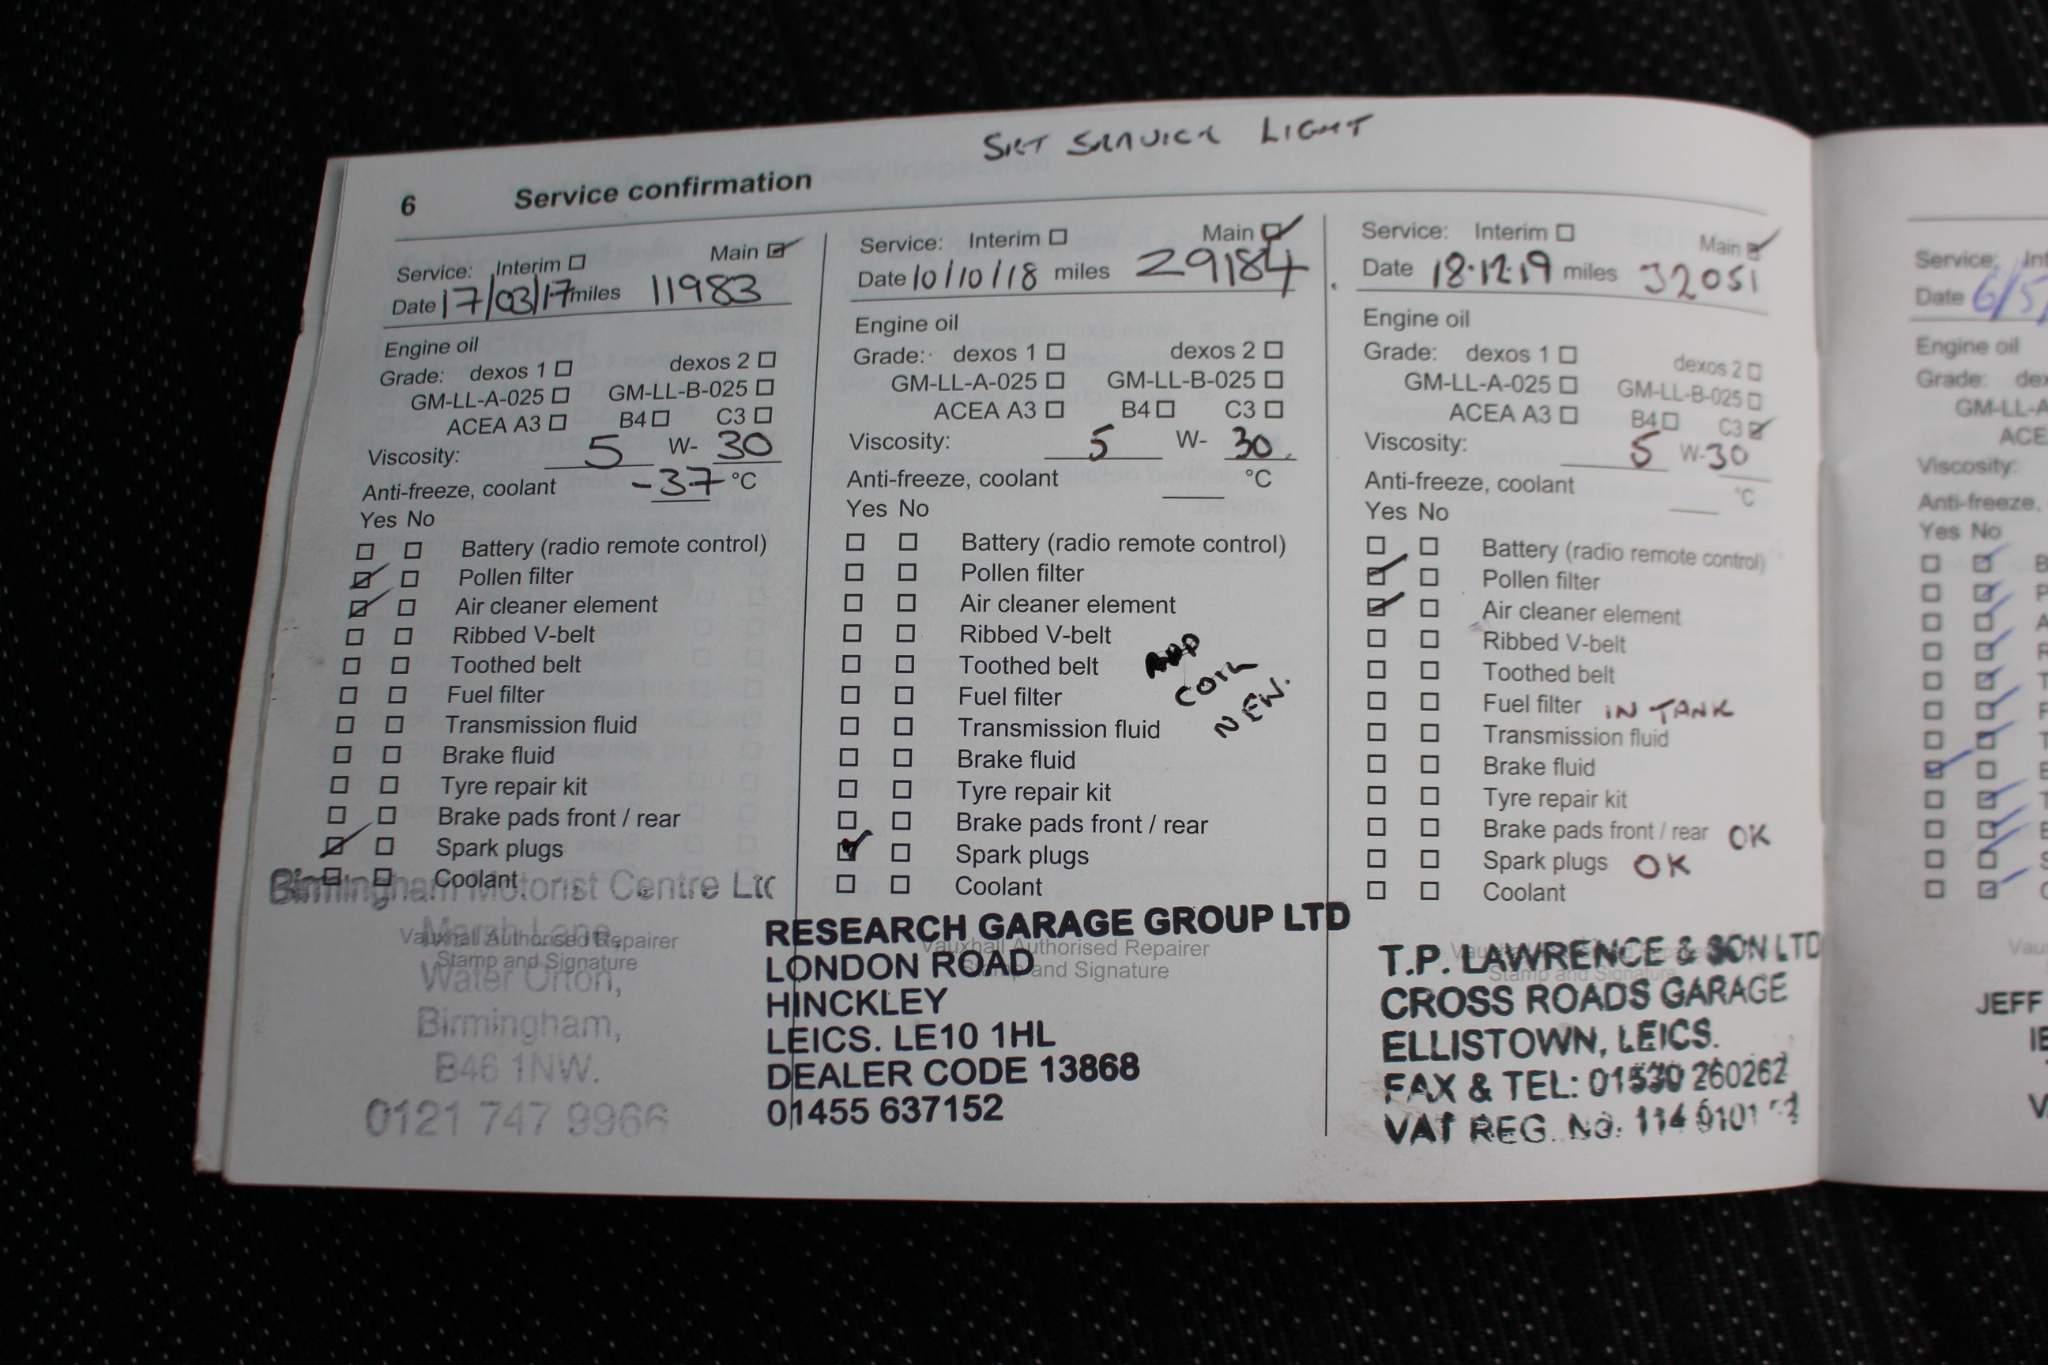 SET SERVICE LIGHT
6 Service confirmation
Service: Interim Main
Date 17/03/17 miles 11983
Engine oil
Grade: dexos 1 dexos 2
GM-LL-A-025 GM-LL-B-025
ACEA A3 B4 C3
Viscosity: 5 W- 30
Anti-freeze, coolant -37 °C
Yes No
Battery (radio remote control)
Pollen filter
Air cleaner element
Ribbed V-belt
Toothed belt
Fuel filter
Transmission fluid
Brake fluid
Tyre repair kit
Brake pads front / rear
Spark plugs
Coolant
Vauxhall Authorised Repairer
Stamp and Signature
Birmingham Motorist Centre Ltd
Marsh Lane,
Water Orton,
Birmingham,
B46 1NW.
0121 747 9966
Service: Interim Main
Date 10/10/18 miles 29184
Engine oil
Grade: dexos 1 dexos 2
GM-LL-A-025 GM-LL-B-025
ACEA A3 B4 C3
Viscosity: 5 W- 30
Anti-freeze, coolant °C
Yes No
Battery (radio remote control)
Pollen filter
Air cleaner element
Ribbed V-belt
Toothed belt
Fuel filter
Transmission fluid
Brake fluid
Tyre repair kit
Brake pads front / rear
Spark plugs
Coolant
COIL
NEW.
Vauxhall Authorised Repairer
Stamp and Signature
RESEARCH GARAGE GROUP LTD
LONDON ROAD
HINCKLEY
LEICS. LE10 1HL
DEALER CODE 13868
01455 637152
Service: Interim Main
Date 18.12.19 miles 32051
Engine oil
Grade: dexos 1 dexos 2
GM-LL-A-025 GM-LL-B-025
ACEA A3 B4 C3
Viscosity: 5 W-30
Anti-freeze, coolant °C
Yes No
Battery (radio remote control)
Pollen filter
Air cleaner element
Ribbed V-belt
Toothed belt
Fuel filter IN TANK
Transmission fluid
Brake fluid
Tyre repair kit
Brake pads front / rear OK
Spark plugs OK
Coolant
Stamp and Signature
T.P. LAWRENCE & SON LTD
CROSS ROADS GARAGE
ELLISTOWN, LEICS.
FAX & TEL: 01530 260262
VAT REG. NO: 114
Service: Int
Date 6/5/
Engine oil
Grade: dex
GM-LL-A
ACE
Viscosity:
Anti-freeze,
Yes No
JEFF